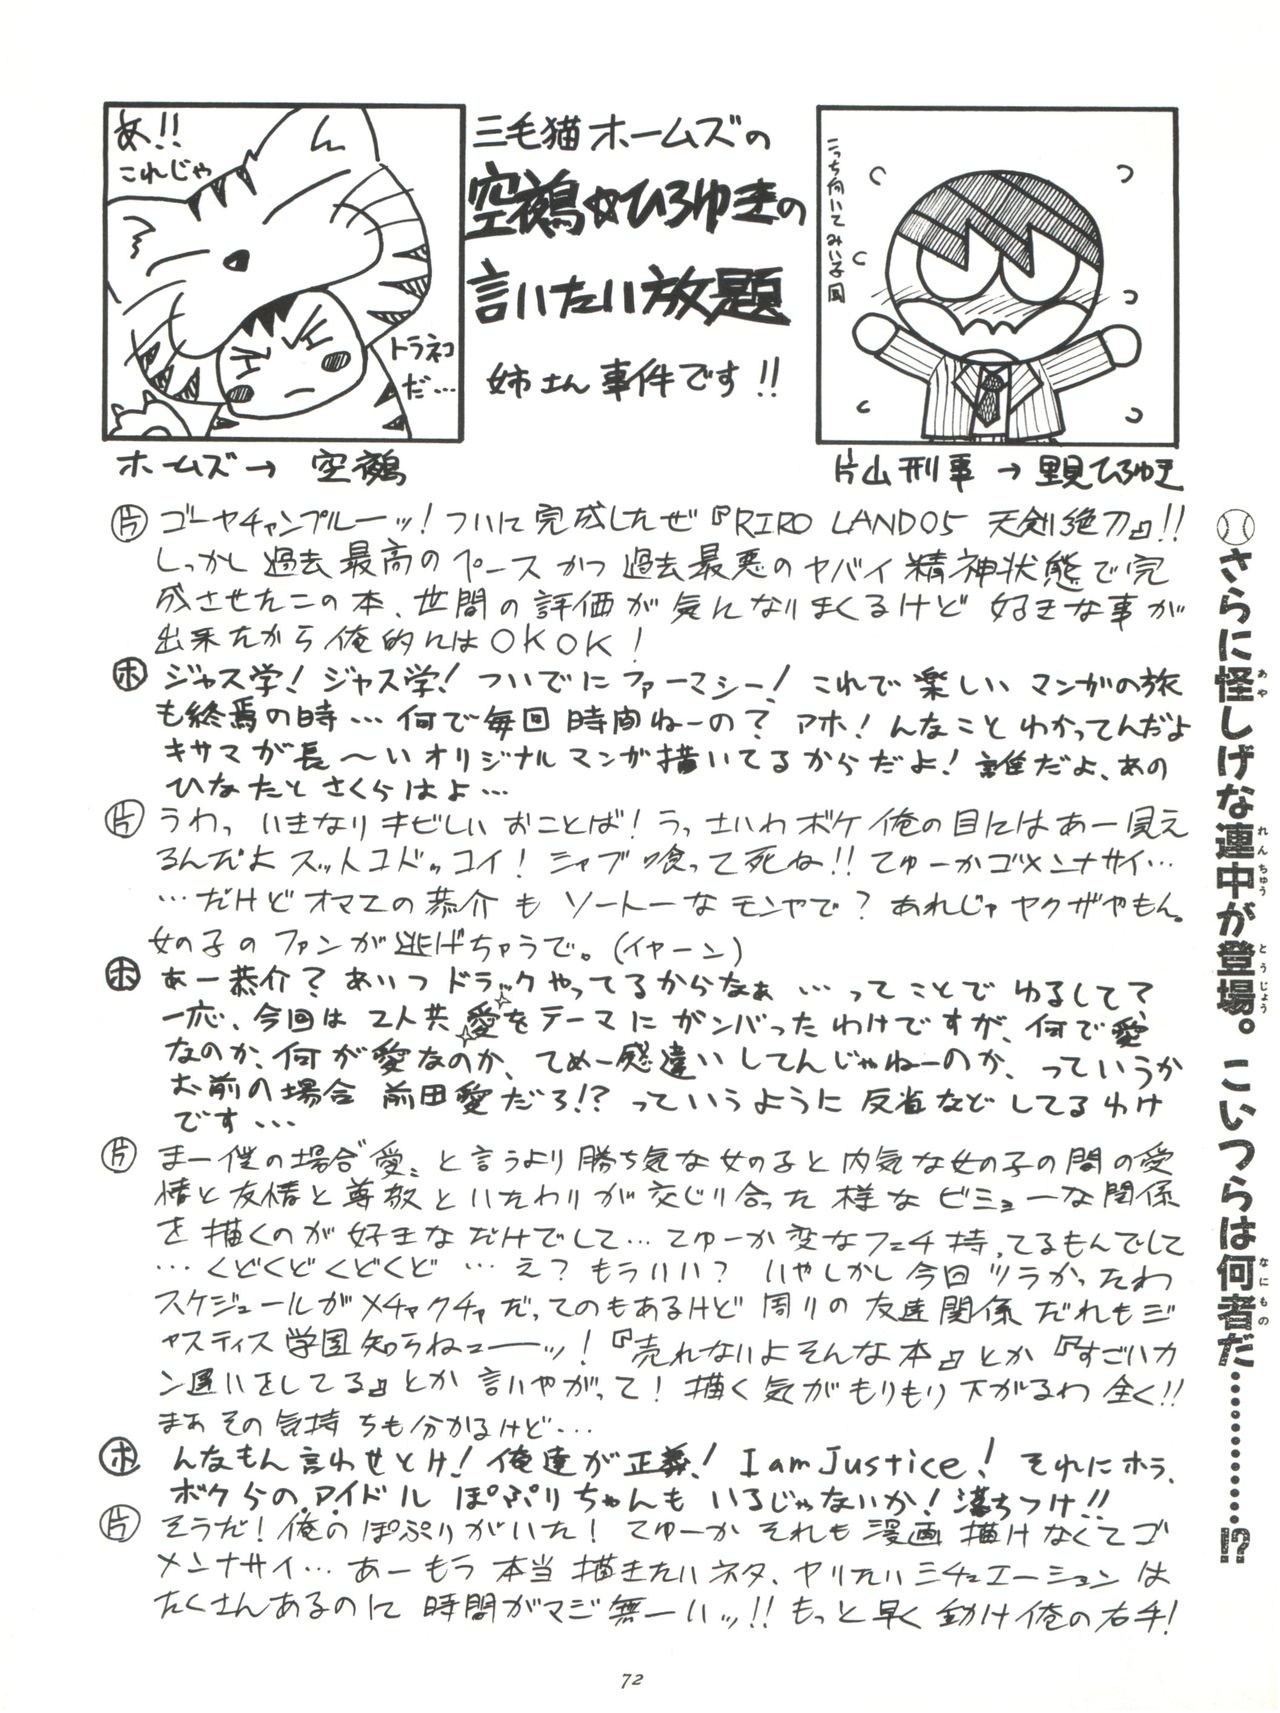 あ!!
これじゃ
トラネコ
だ…
三毛猫ホームズの
空鵺☆ひろゆきの
言いたい放題
姉さん事件です!!
こっち向いてみい子風
ホームズ→ 空鵺
片山刑事 → 里見ひろゆき
片 ゴーヤチャンプルーッ!ついに完成したぜ『RIRO LAND05 天剣絶刀』!!
しっかし過去最高のペースかつ過去最悪のヤバイ精神状態で完
成させたこの本、世間の評価が気んなりまくるけど 好きな事が
出来たから俺的んはOKOK!
ホ ジャス学!ジャス学!ついでにファーマシー!これで楽しいマンガの旅
も終焉の時…何で毎回時間ねーの?アホ!んなことわかってんだよ
キサマが長〜いオリジナルマンガ描いてるからだよ!誰だよ、あの
ひなたとさくらはよ…
片 うわっ いきなりキビしいおことば!うっさいわボケ俺の目にはあー見え
るんだよスットコドッコイ!シャブ喰って死ね!!てゆーかゴメンナサイ…
…だけどオマエの恭介もソートーなモンやで?あれじゃヤクザやもん。
女の子のファンが逃げちゃうで。(イヤーン)
ホ あー恭介?あいつドラックやってるからなぁ…ってことでゆるして?
一応、今回は2人共愛をテーマにガンバったわけですが、何で愛
なのか、何が愛なのか、てめー感違いしてんじゃねーのか、っていうか
お前の場合 前田愛だろ!?っていうように反省などしてるわけ
です…
片 まー僕の場合"愛"と言うより勝ち気な女の子と内気な女の子の間の愛
情と友情と尊敬といたわりが交じり合った様なビミョーな関係
を描くのが好きなだけでして…てゆーか変なフェチ持ってるもんでして
…くどくどくどくど…え?もういい?いやしかし今回ツラかったわ
スケジュールがメチャクチャだってのもあるけど周りの友達関係だれもジ
ャスティス学園知らねェーーッ!『売れないよそんな本』とか『すごいカ
ン違いをしてる』とか言いやがって!描く気がもりもり下がるわ全く!!
まぁその気持ちも分かるけど…
ホ んなもん言わせとけ!俺達が正義!I am Justice!それにホラ、
ボクらのアイドルぽぷりちゃんもいるじゃないか!落ちつけ!!
片 そうだ!俺のぽぷりがいた!てゆーかそれも漫画描けなくてゴ
メンナサイ…あーもう本当描きたいネタ、ヤリたいシチュエーションは
たくさんあるのに時間がマジ無ーいッ!!もっと早く動け俺の右手!
さらに怪しげな連中が登場。こいつらは何者だ…………!?
72